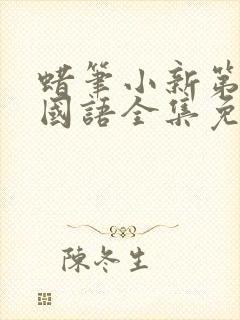 蜡筆小新第
國語全集免
陳冬生